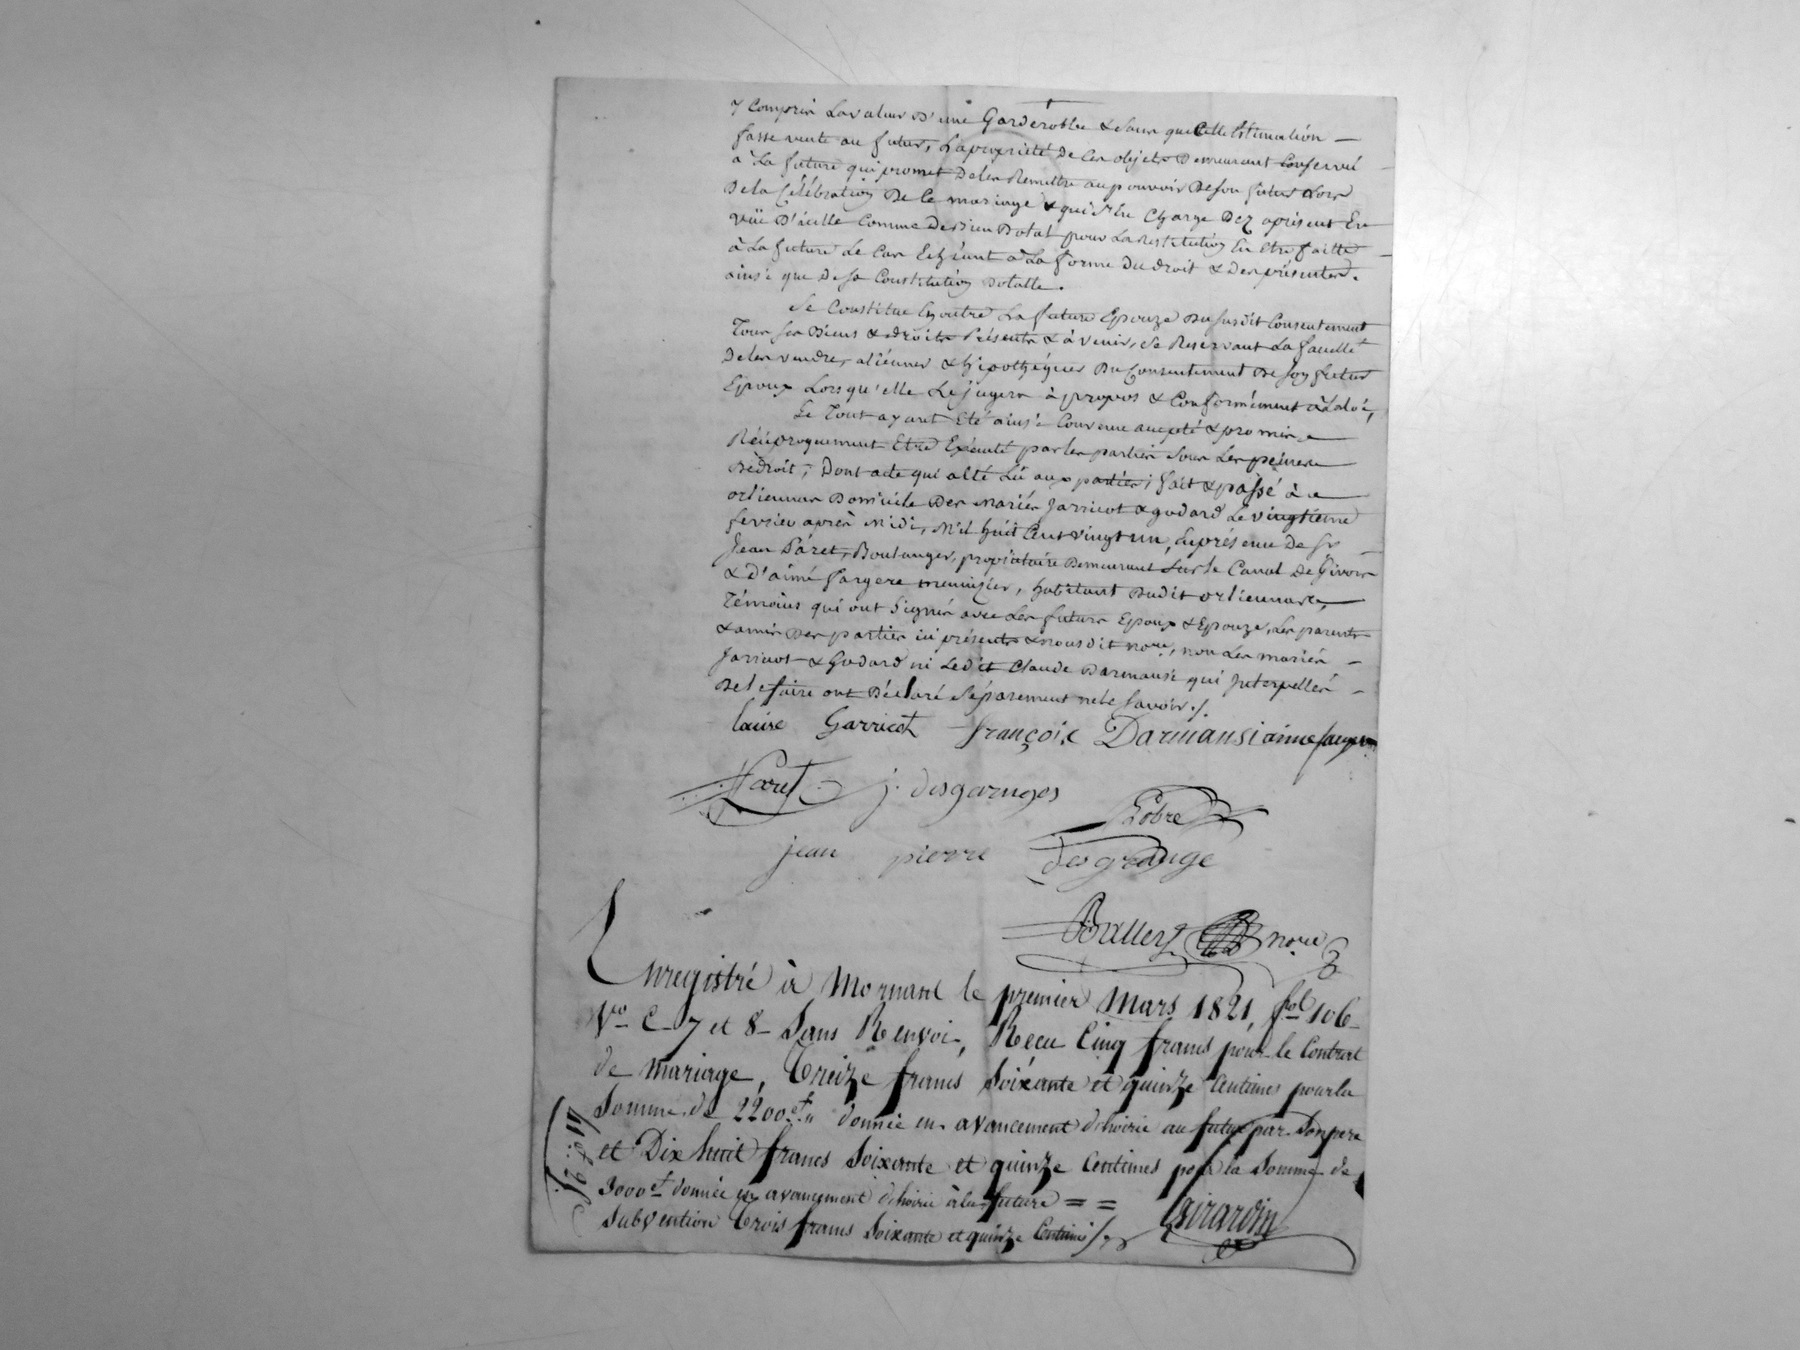 y Compris La valeur D'une Garderobbe & sans que Cette Estimation —
fasse vente au futur, La propriété de Ces objets Demeurant Conservé —
à La future qui promet De les Remettre au pouvoir De son futur Lors
De la Célébration De Ce mariage & qui s'En Charge Dez àprésent En
vüe D'icelle Comme De Bien Dotal pour La Restitution En Etre faitte
à La future Le Cas Echéant à La forme Du droit & Des présentes.
ainsi que De sa Constitution Dotalle.
Se Constitue En outre La future Epouze Du susdit Consentement
Tous ses Biens & droits Présents & à venir, Se Reservant La faculté
De les vendre, aliéner & hipothéquer Du Consentement De son futur
Epoux Lorsqu'elle Le jugera à propos & Conformément à La loi,
Le Tout ayant Eté ainsi Convenu accepté & promis
Réciproquement Etre Exécuté par les parties Sous Les peines
De droit, Dont acte qui a Eté Lû aux parties; fait & passé à
orlienas Domicile Des mariés Jarricot & godard Le vingtieme
fevrier après Midi, Mil huit Cent vingt un, En présence De Sr —
Jean Páret, Boulanger, propriétaire Demeurant Sur le Canal De Givors
& d'aimé fargere meunizier, habitant Dudit orlienas,
Témoins qui ont Signés avec Les futurs Epoux & Epouze, Les parents
& amis Des parties ici présents & nousdit nore, non Les mariés —
Jarricot & Godard ni Ledit Claude Darmansi qui Interpellés —
De le faire ont Déclaré Séparement ne le Savoir./.
Garricot françois Darmansi
Paret j. desgarnges
jean pierre desgrange
nore
Enregistré à Mornant le premier Mars 1821, fol 106
Vo C 7 et 8 Sans Renvoi, Recu Cinq francs pour le Contrat
de Mariage, Treize francs Soixante et quinze Centimes pour la
Somme de 2200 f. donnée en avancement d'hoirie au futur par Son pere
et Dix huit francs Soixante et quinze Centimes pour la Somme de
3000 f donnée en avancement d'hoirie à la future = =
Subvention Trois francs Soixante et quinze Centimes
Girardin